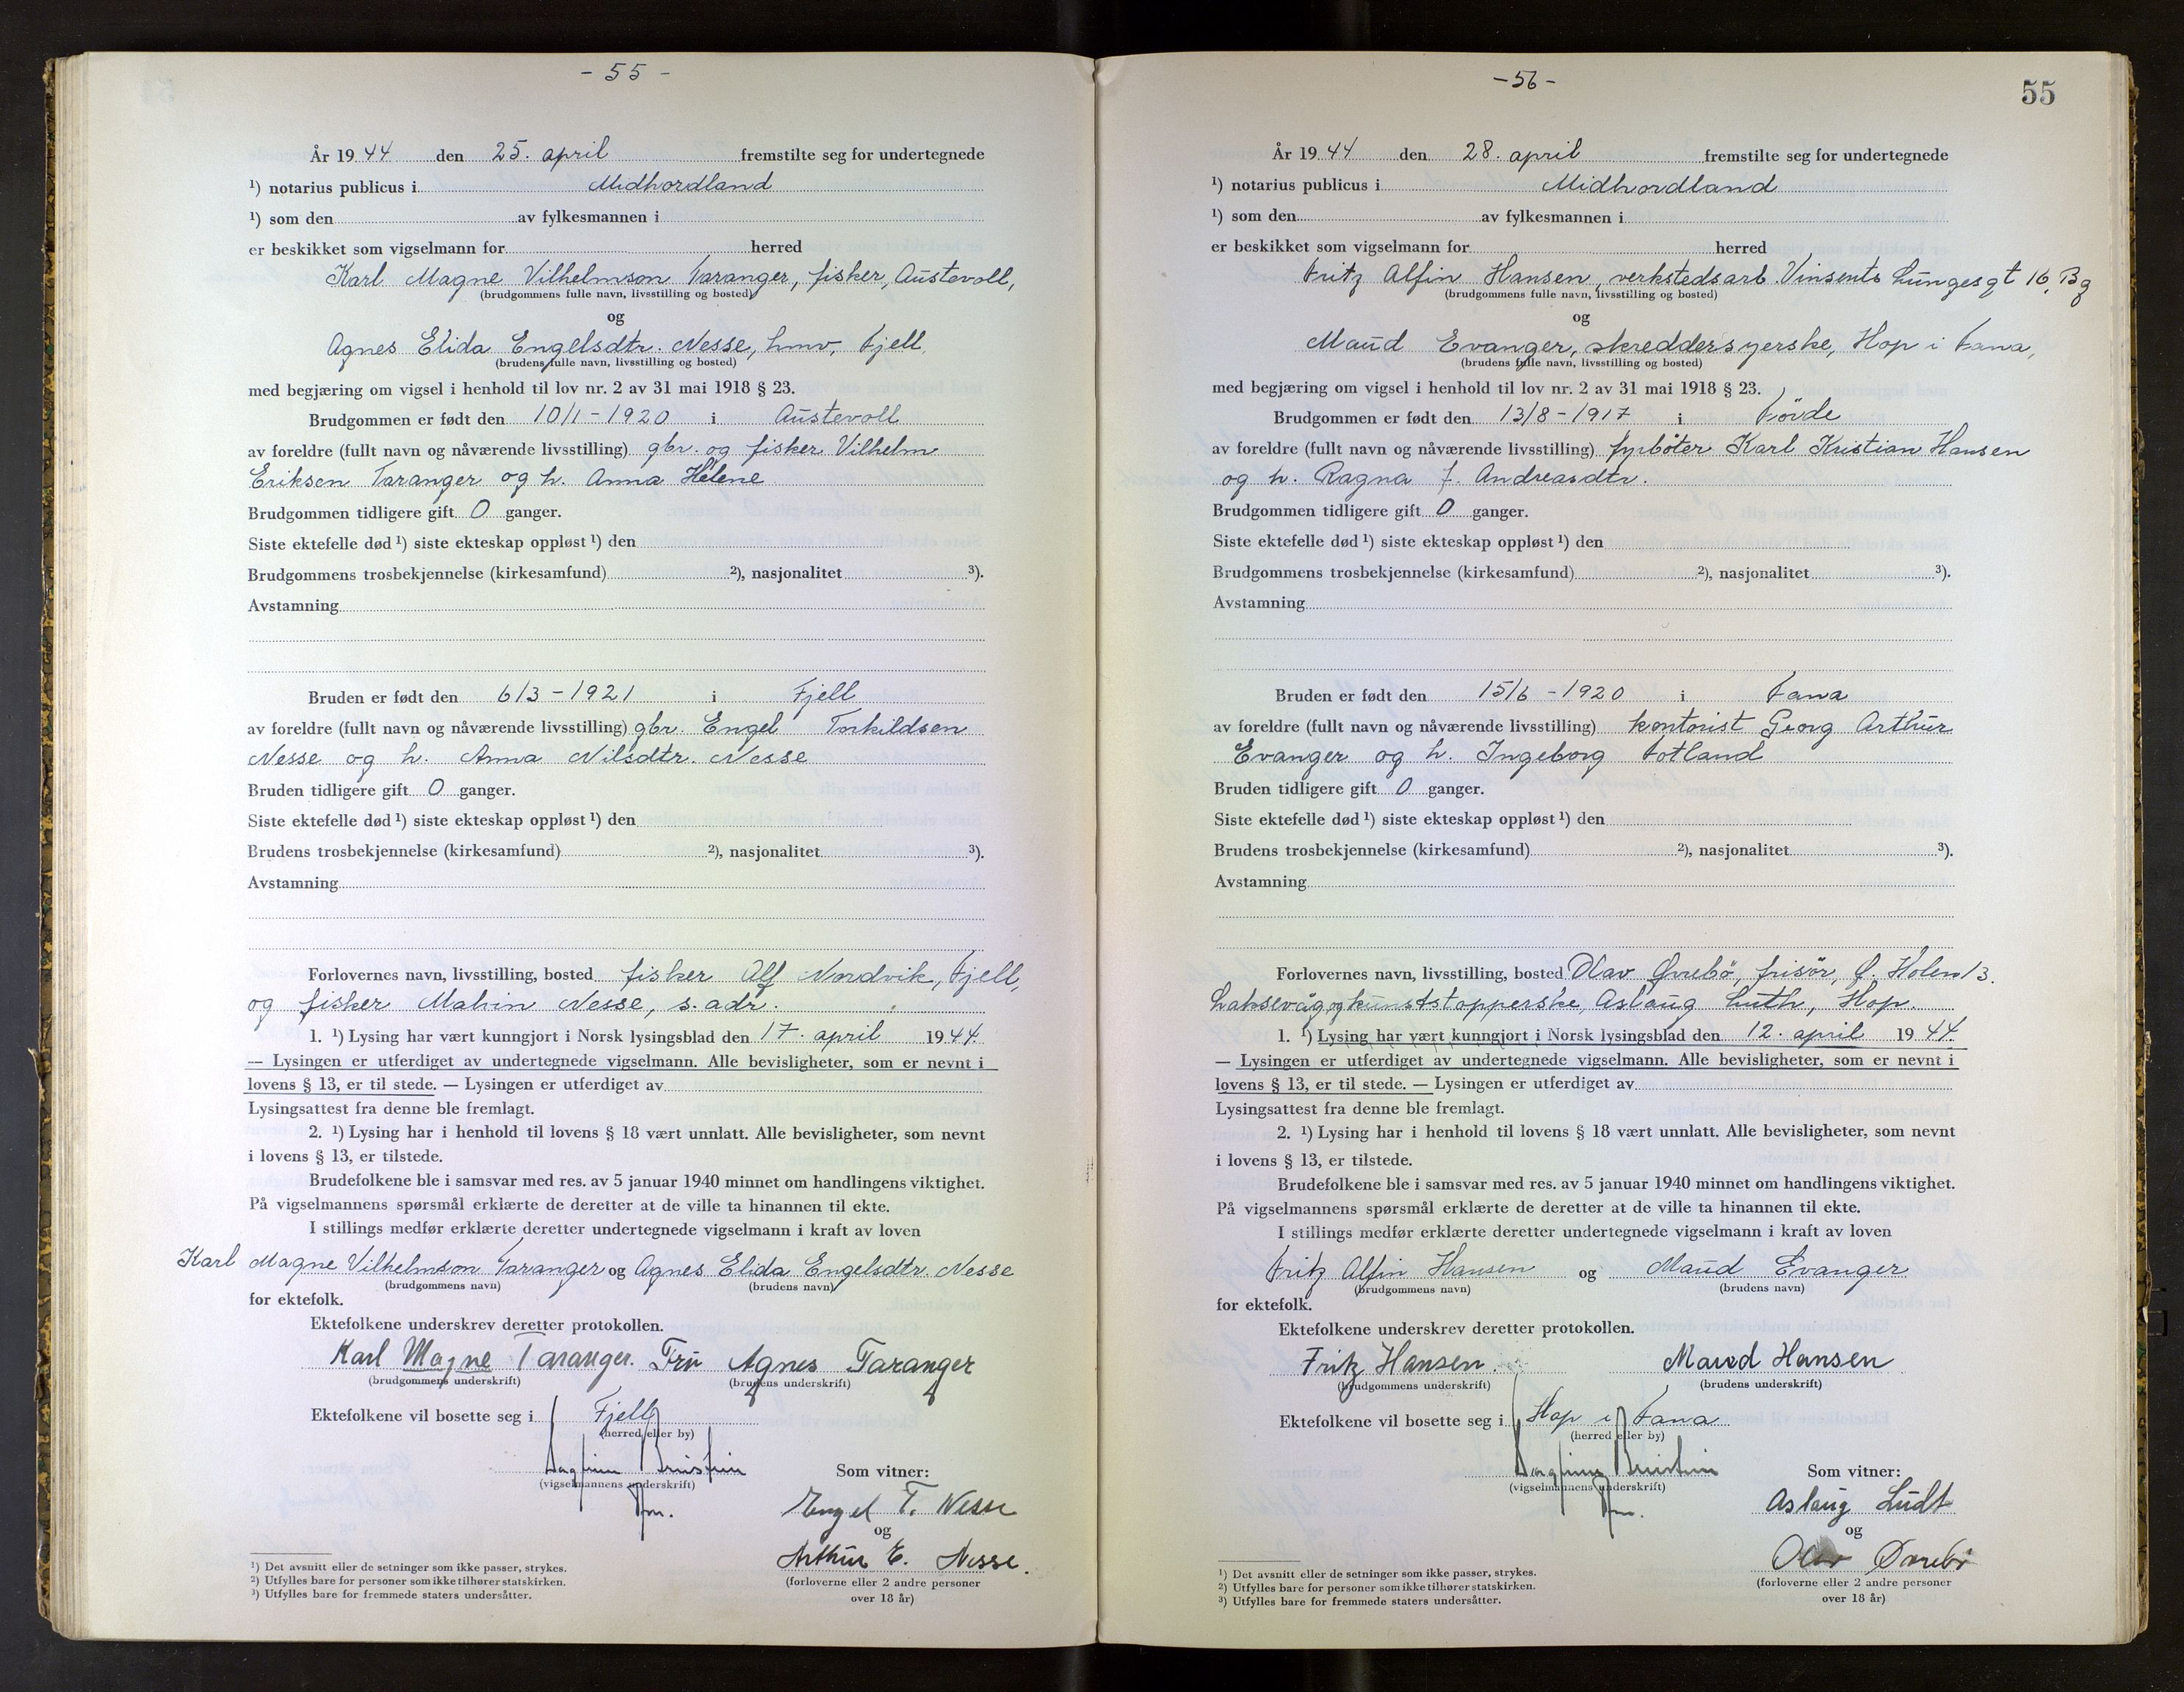 - 55 -
År 1944 den 25. april fremstilte seg for undertegnede
¹) notarius publicus i Midhordland
¹) som den av fylkesmannen i
er beskikket som vigselmann for herred
Karl Magne Vilhelmson Taranger, fisker, Austevoll,
(brudgommens fulle navn, livsstilling og bosted)
og
Agnes Elida Engelsdtr. Nesse, hmv, Fjell,
(brudens fulle navn, livsstilling og bosted)
med begjæring om vigsel i henhold til lov nr. 2 av 31 mai 1918 § 23.
Brudgommen er født den 10/1 - 1920 i Austevoll
av foreldre (fullt navn og nåværende livsstilling) gbr. og fisker Vilhelm
Eriksen Taranger og h. Anna Helene
Brudgommen tidligere gift 0 ganger.
Siste ektefelle død ¹) siste ekteskap oppløst ¹) den
Brudgommens trosbekjennelse (kirkesamfund) ²), nasjonalitet ³).
Avstamning
Bruden er født den 6/3 - 1921 i Fjell
av foreldre (fullt navn og nåværende livsstilling) gbr. Engel Torkildsen
Nesse og h. Anna Nilsdtr. Nesse
Bruden tidligere gift 0 ganger.
Siste ektefelle død ¹) siste ekteskap oppløst ¹) den
Brudens trosbekjennelse (kirkesamfund) ²), nasjonalitet ³).
Avstamning
Forlovernes navn, livsstilling, bosted fisker Alf Nordvik, Fjell,
og fisker Malvin Nesse, s. adr.
1. ¹) Lysing har vært kunngjort i Norsk lysingsblad den 17. april 1944.
— Lysingen er utferdiget av undertegnede vigselmann. Alle bevisligheter, som er nevnt i
lovens § 13, er til stede. — Lysingen er utferdiget av
Lysingsattest fra denne ble fremlagt.
2. ¹) Lysing har i henhold til lovens § 18 vært unnlatt. Alle bevisligheter, som nevnt
i lovens § 13, er tilstede.
Brudefolkene ble i samsvar med res. av 5 januar 1940 minnet om handlingens viktighet.
På vigselmannens spørsmål erklærte de deretter at de ville ta hinannen til ekte.
I stillings medfør erklærte deretter undertegnede vigselmann i kraft av loven
Karl Magne Vilhelmson Taranger og Agnes Elida Engelsdtr. Nesse
(brudgommens navn) (brudens navn)
for ektefolk.
Ektefolkene underskrev deretter protokollen.
Karl Magne Taranger. Fru Agnes Taranger
(brudgommens underskrift) (brudens underskrift)
Ektefolkene vil bosette seg i Fjell
(herred eller by)
Som vitner:
(vigselmannens underskrift)
Engel T. Nesse
og
Arthur E. Nesse.
(forloverne eller 2 andre personer
over 18 år)
¹) Det avsnitt eller de setninger som ikke passer, strykes.
²) Utfylles bare for personer som ikke tilhører statskirken.
³) Utfylles bare for fremmede staters undersåtter.
- 56 -
55
År 1944 den 28. april fremstilte seg for undertegnede
¹) notarius publicus i Midhordland
¹) som den av fylkesmannen i
er beskikket som vigselmann for herred
Fritz Alfin Hansen, verkstedsarb. Vinsents Lungesgt 16, Bg
(brudgommens fulle navn, livsstilling og bosted)
og
Maud Evanger, skreddersyerske, Hop i Fana,
(brudens fulle navn, livsstilling og bosted)
med begjæring om vigsel i henhold til lov nr. 2 av 31 mai 1918 § 23.
Brudgommen er født den 13/8 - 1917 i Förde
av foreldre (fullt navn og nåværende livsstilling) fyrböter Karl Kristian Hansen
og h. Ragna f. Andreasdtr.
Brudgommen tidligere gift 0 ganger.
Siste ektefelle død ¹) siste ekteskap oppløst ¹) den
Brudgommens trosbekjennelse (kirkesamfund) ²), nasjonalitet ³).
Avstamning
Bruden er født den 15/6 - 1920 i Fana
av foreldre (fullt navn og nåværende livsstilling) kontorist Georg Arthur
Evanger og h. Ingeborg Totland
Bruden tidligere gift 0 ganger.
Siste ektefelle død ¹) siste ekteskap oppløst ¹) den
Brudens trosbekjennelse (kirkesamfund) ²), nasjonalitet ³).
Avstamning
Forlovernes navn, livsstilling, bosted Olav Øvrebö, frisör, Ø. Holen 13.
Laksevåg, og kunststopperske, Aslaug Luth, Hop.
1. ¹) Lysing har vært kunngjort i Norsk lysingsblad den 12. april 1944.
— Lysingen er utferdiget av undertegnede vigselmann. Alle bevisligheter, som er nevnt i
lovens § 13, er til stede. — Lysingen er utferdiget av
Lysingsattest fra denne ble fremlagt.
2. ¹) Lysing har i henhold til lovens § 18 vært unnlatt. Alle bevisligheter, som nevnt
i lovens § 13, er tilstede.
Brudefolkene ble i samsvar med res. av 5 januar 1940 minnet om handlingens viktighet.
På vigselmannens spørsmål erklærte de deretter at de ville ta hinannen til ekte.
I stillings medfør erklærte deretter undertegnede vigselmann i kraft av loven
Fritz Alfin Hansen og Maud Evanger
(brudgommens navn) (brudens navn)
for ektefolk.
Ektefolkene underskrev deretter protokollen.
Fritz Hansen. Maud Hansen
(brudgommens underskrift) (brudens underskrift)
Ektefolkene vil bosette seg i Hop i Fana
(herred eller by)
Som vitner:
(vigselmannens underskrift)
Aslaug Ludt
og
Olav Øvrebö
(forloverne eller 2 andre personer
over 18 år)
¹) Det avsnitt eller de setninger som ikke passer, strykes.
²) Utfylles bare for personer som ikke tilhører statskirken.
³) Utfylles bare for fremmede staters undersåtter.